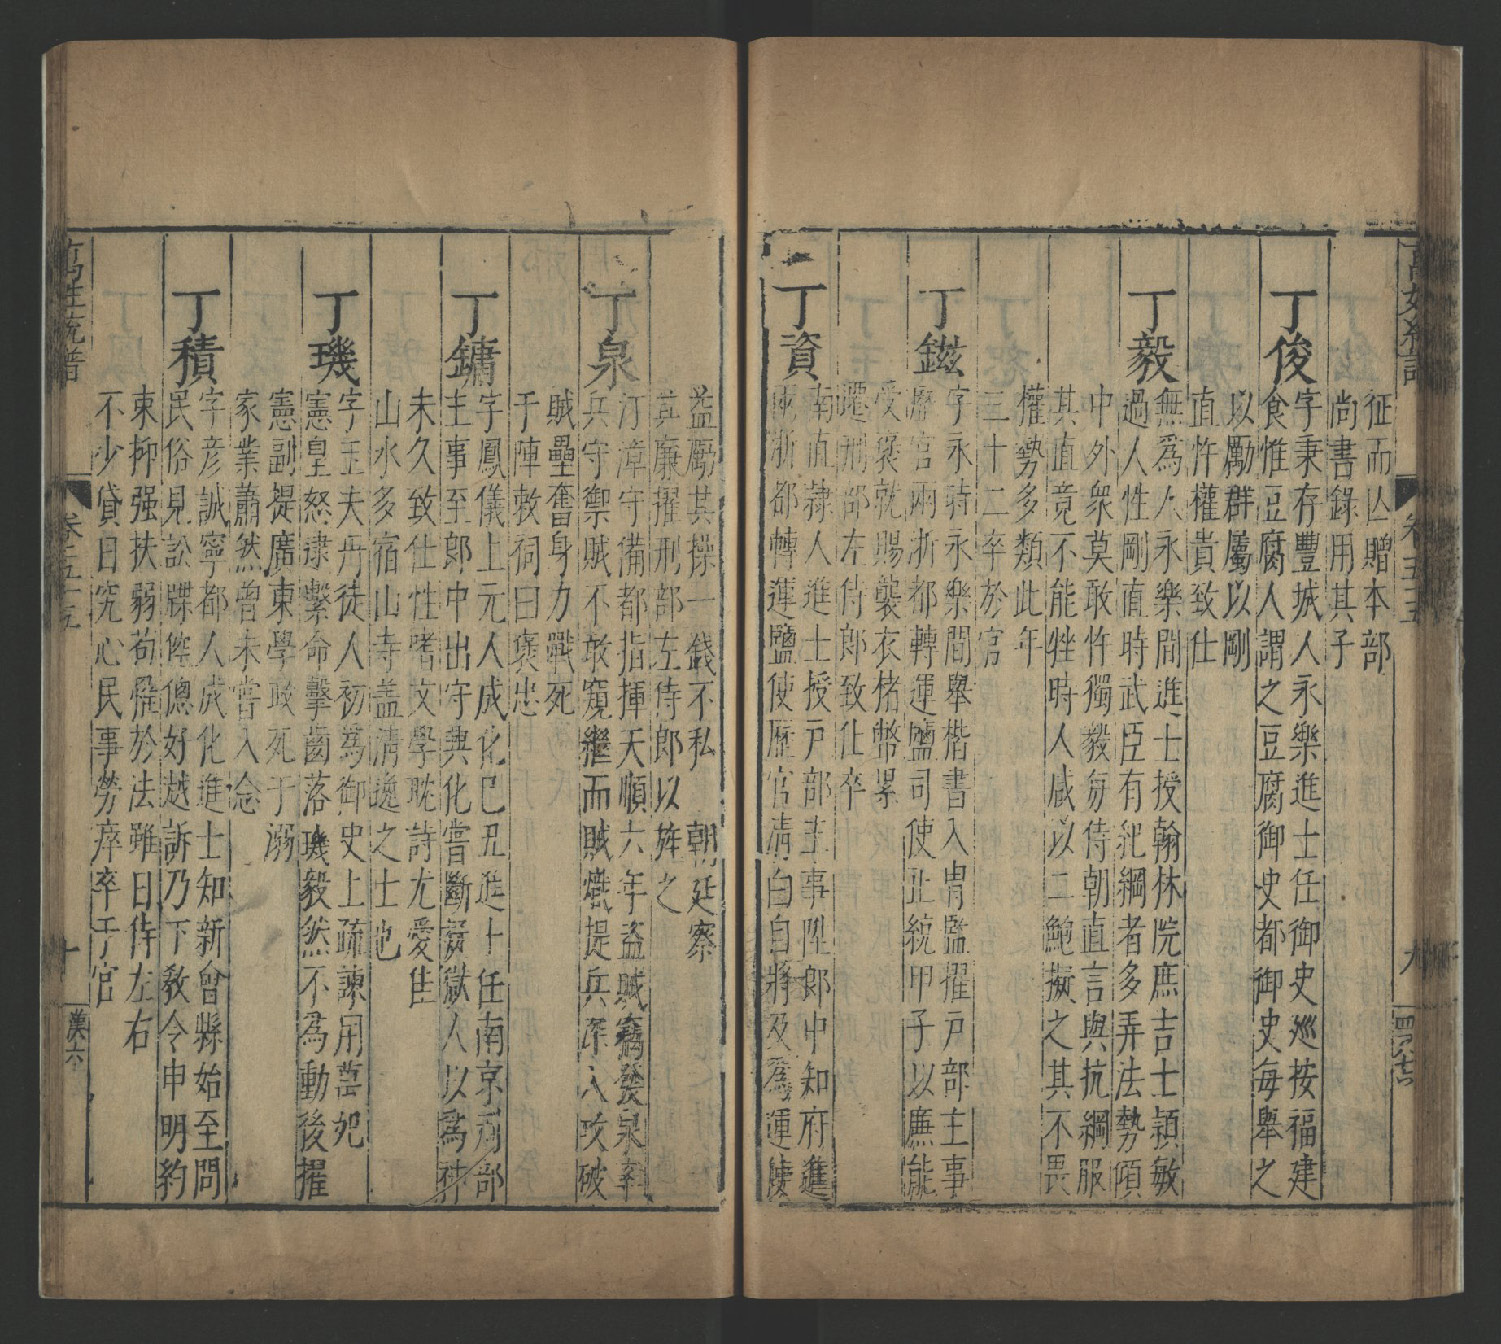 征而亾贈本部
尚書錄用其子
丁俊
字秉存豐城人永樂進士任御史廵按福建
食惟豆腐人謂之豆腐御史都御史每舉之
以勵群屬以剛
直忤權貴致仕
丁毅
無為人永樂間進士授翰林院庶吉士穎敏
過人性剛直時武臣有紀綱者多弄法勢傾
中外衆莫敢忤獨毅每侍朝直言與抗綱服
其直竟不能牲時人咸以二鮑擬之其不畏
權勢多類此年
三十二卒於官
丁鎡
字永時永樂間舉楷書入胄監擢戸部主事
歷官兩浙都轉運鹽司使正統甲子以廉能
受褒就賜襲衣楮幣累
遷刑部左侍郎致仕卒
丁資
南直隷人進士授戸部主事陞郎中知府進
兩浙都轉運鹽使歷官清白自將及為運使
益勵其操一錢不私 朝廷察
其廉擢刑部左侍郎以旌之
丁泉
汀漳守備都指揮天順六年盗賊竊發泉率
兵守禦賊不敢窺繼而賊熾提兵深入攻破
賊壘奮身力戰死
于陣敕祠曰褒忠
丁鏞
字鳳儀上元人成化己丑進士任南京刑部
主事至郎中出守興化嘗斷疑獄人以為神
未久致仕性嗜文學耽詩尤愛佳
山水多宿山寺盖清逸之士也
丁璣
字玉夫丹徒人初為御史上疏諫用萬妃
憲皇怒逮繫命擊齒落璣毅然不為動後擢
憲副提廣東學政死于溺
家業蕭然曾未嘗入念
丁積
字彦誠寧都人成化進士知新會縣始至問
民俗見訟牒倅傯好越訴乃下教令申明約
束抑强扶弱茍罹於法雖日侍左右
不少貸日究心民事勞瘁卒于官
萬姓統譜
卷五十五
九
萬姓統譜
卷五十五
十